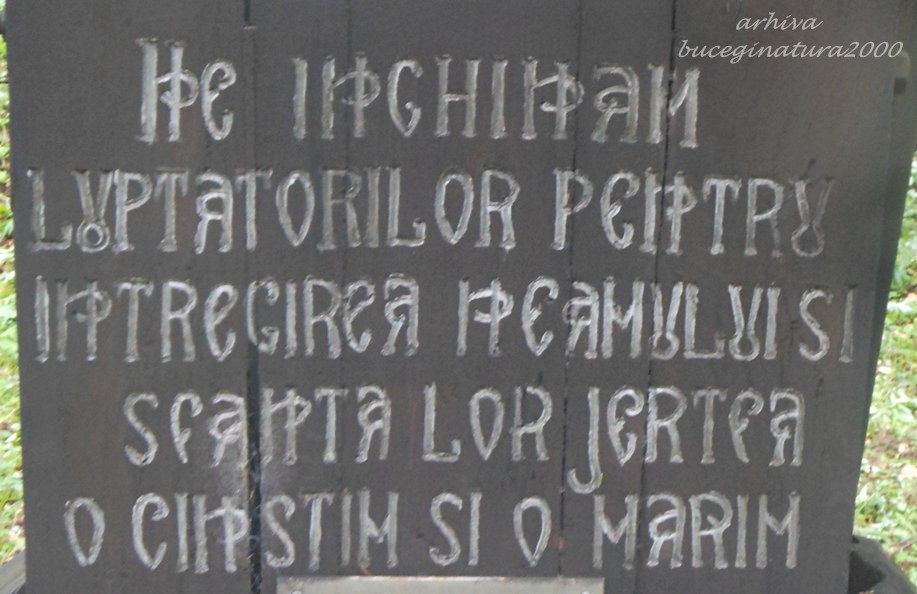 arhiva
buceginatura2000
NE INCHINAM
LUPTATORILOR PENTRU
INTREGIREA NEAMULUI SI
SFANTA LOR JERTFA
O CINSTIM SI O MARIM